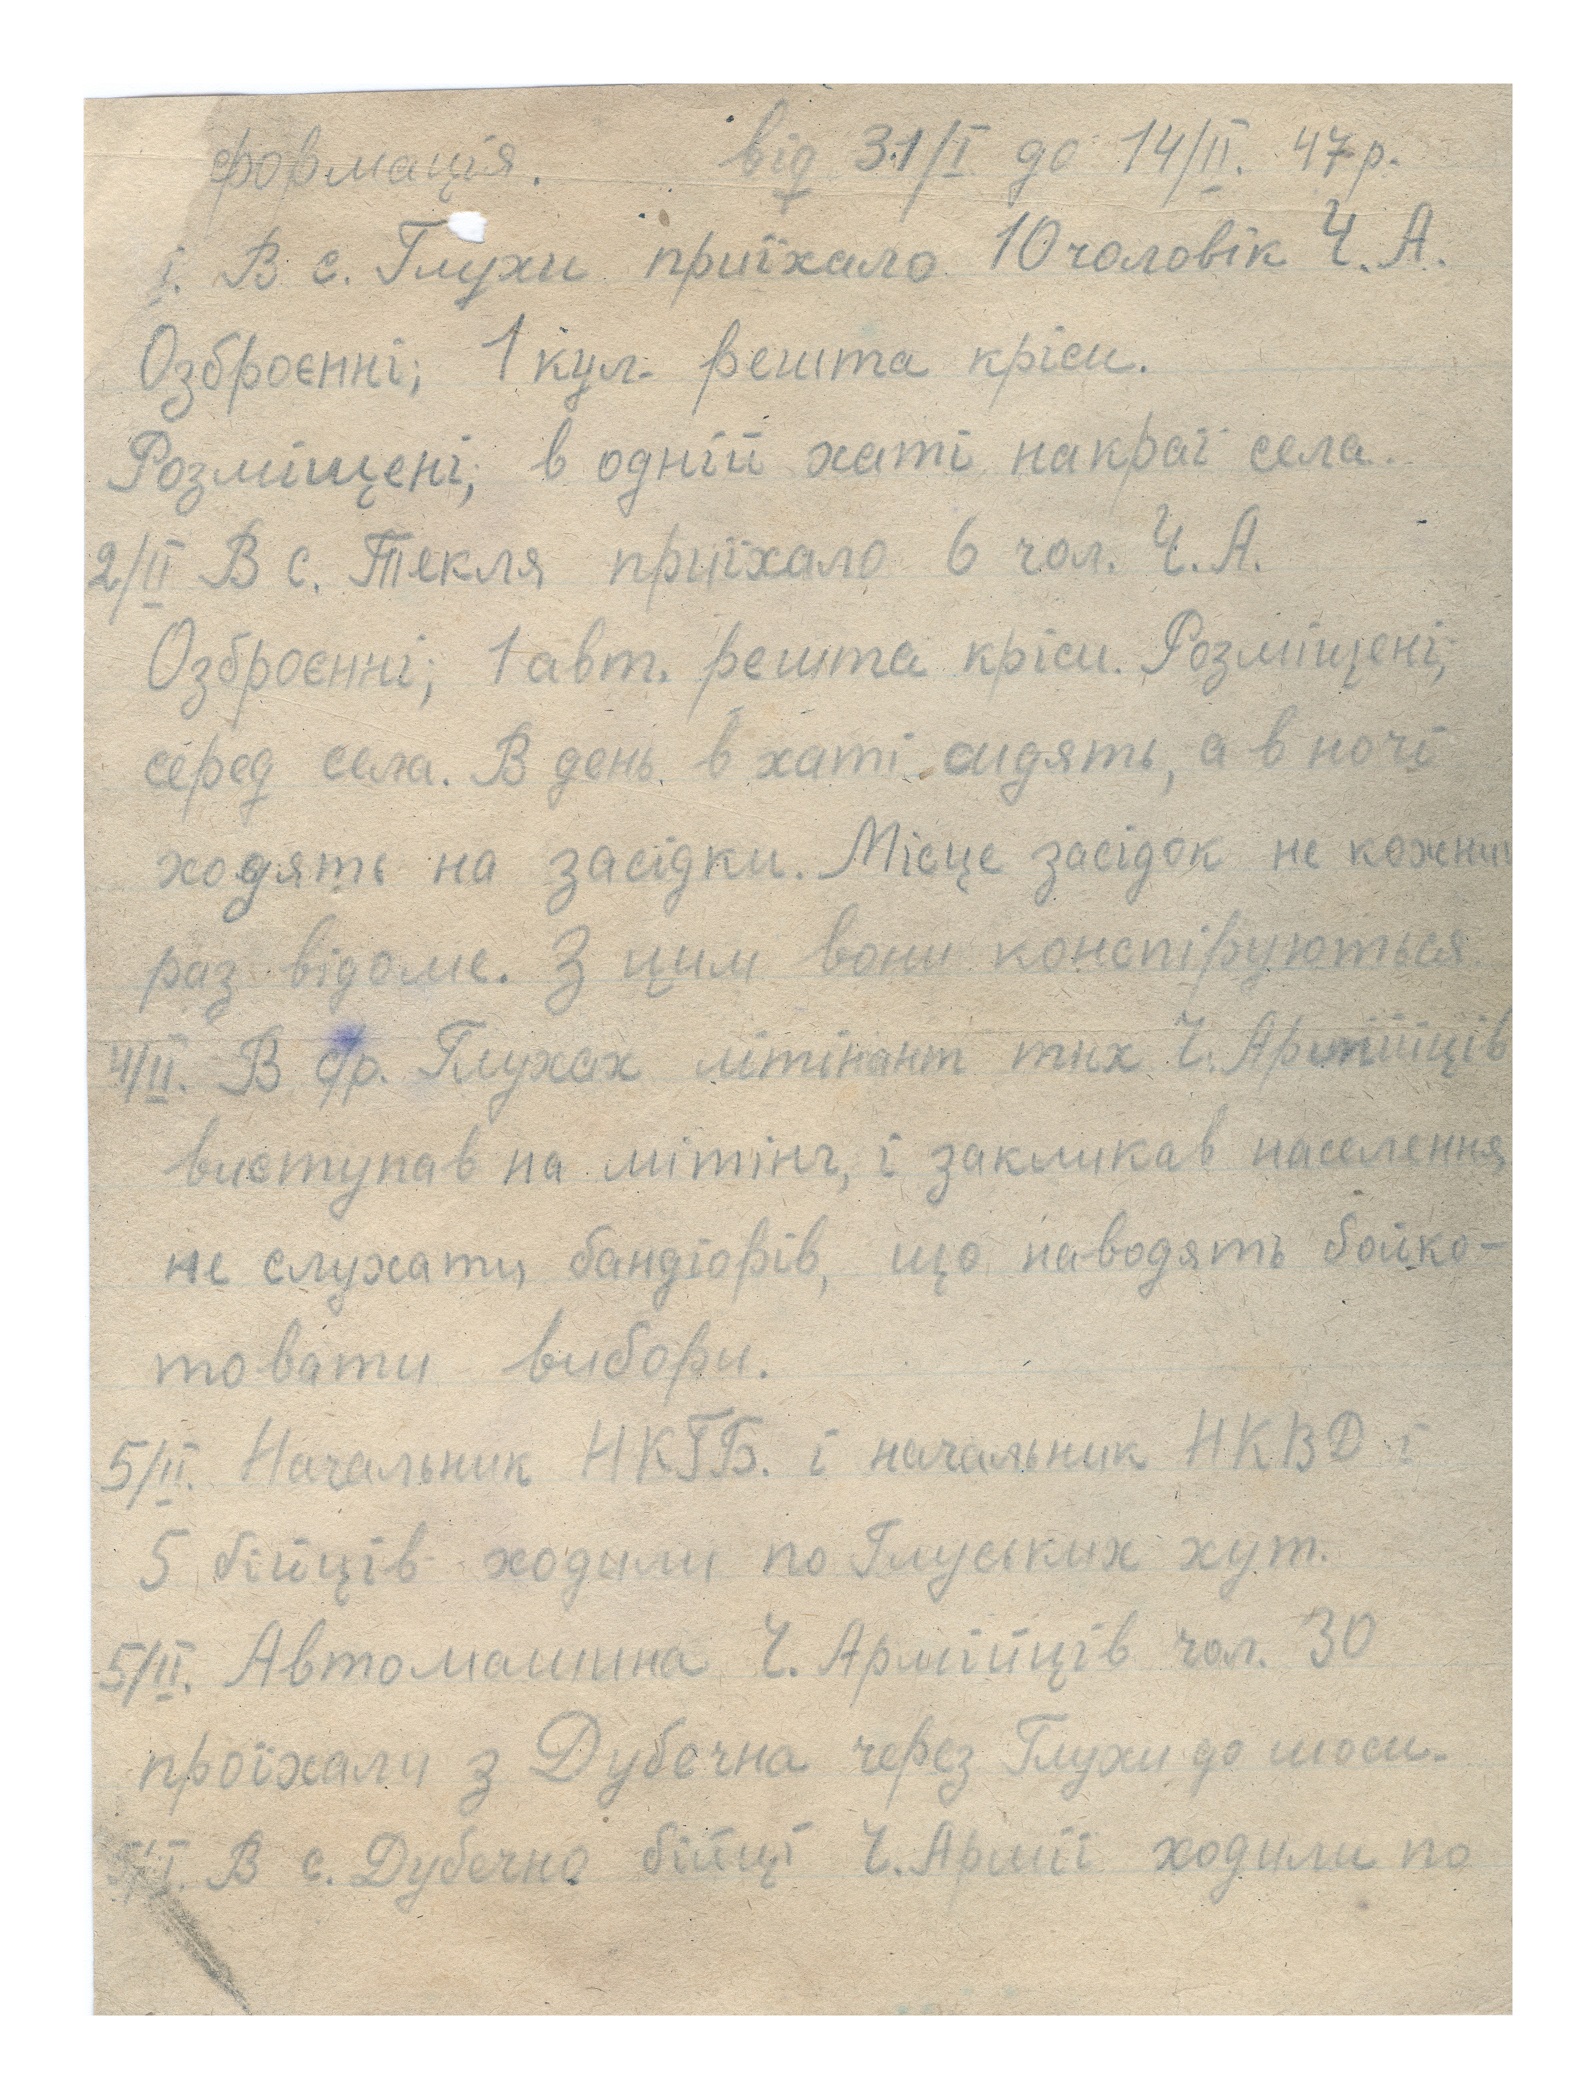 формація. від 31/I до 14/II. 47 р.
і. В с. Глухи приїхало 10 чоловік Ч. А.
Озброєнні; 1 кул. решта кріси.
Розміщені; в одній хаті на краї села.
2/II В с. Текля приїхало 6 чол. Ч. А.
Озброєнні; 1 авт. решта кріси. Розміщені;
серед села. В день в хаті сидять, а в ночі
ходять на засідки. Місце засідок не кожний
раз відоме. З цим вони конспіруються
4/II. В с/р. Глухах літінант тих Ч. Армійців
виступав на мітінг, і закликав населення,
не слухати бандіорів, що наводять бойко-
товати вибори.
5/II. Начальник НКГБ. і начальник НКВД і
5 бійців ходили по Глуських хут.
5/II. Автомашина Ч. Армійців чол. 30
проїхали з Дубечна через Глухи до шоси.
В с. Дубечно бійці Ч. Армії ходили по